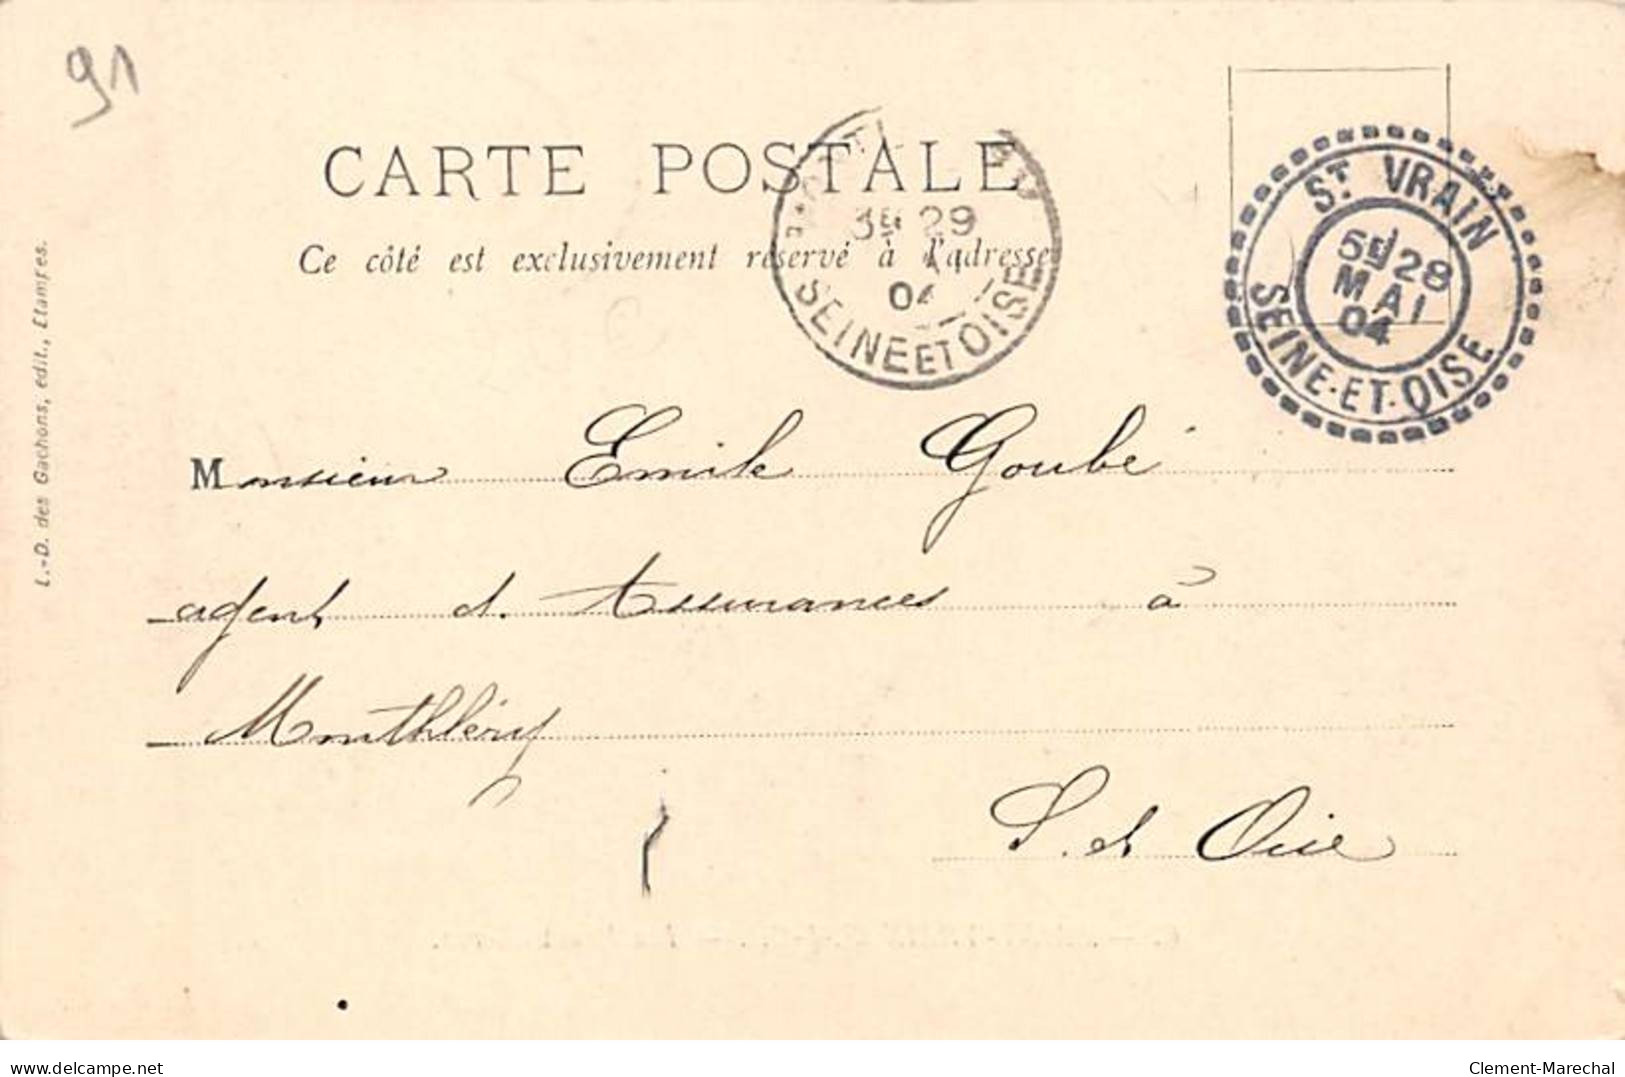 91
CARTE POSTALE
Ce côté est exclusivement réservé à l'adresse
3E 29
04
SEINE ET OISE
ST VRAIN
5E 28
MAI
04
SEINE-ET-OISE
L.-D. des Gachons, édit., Etampes.
Monsieur Emile Goubé
agent d. Assurances à
Monthléry
S. et Oise
delcampe.net
Clement-Marechal